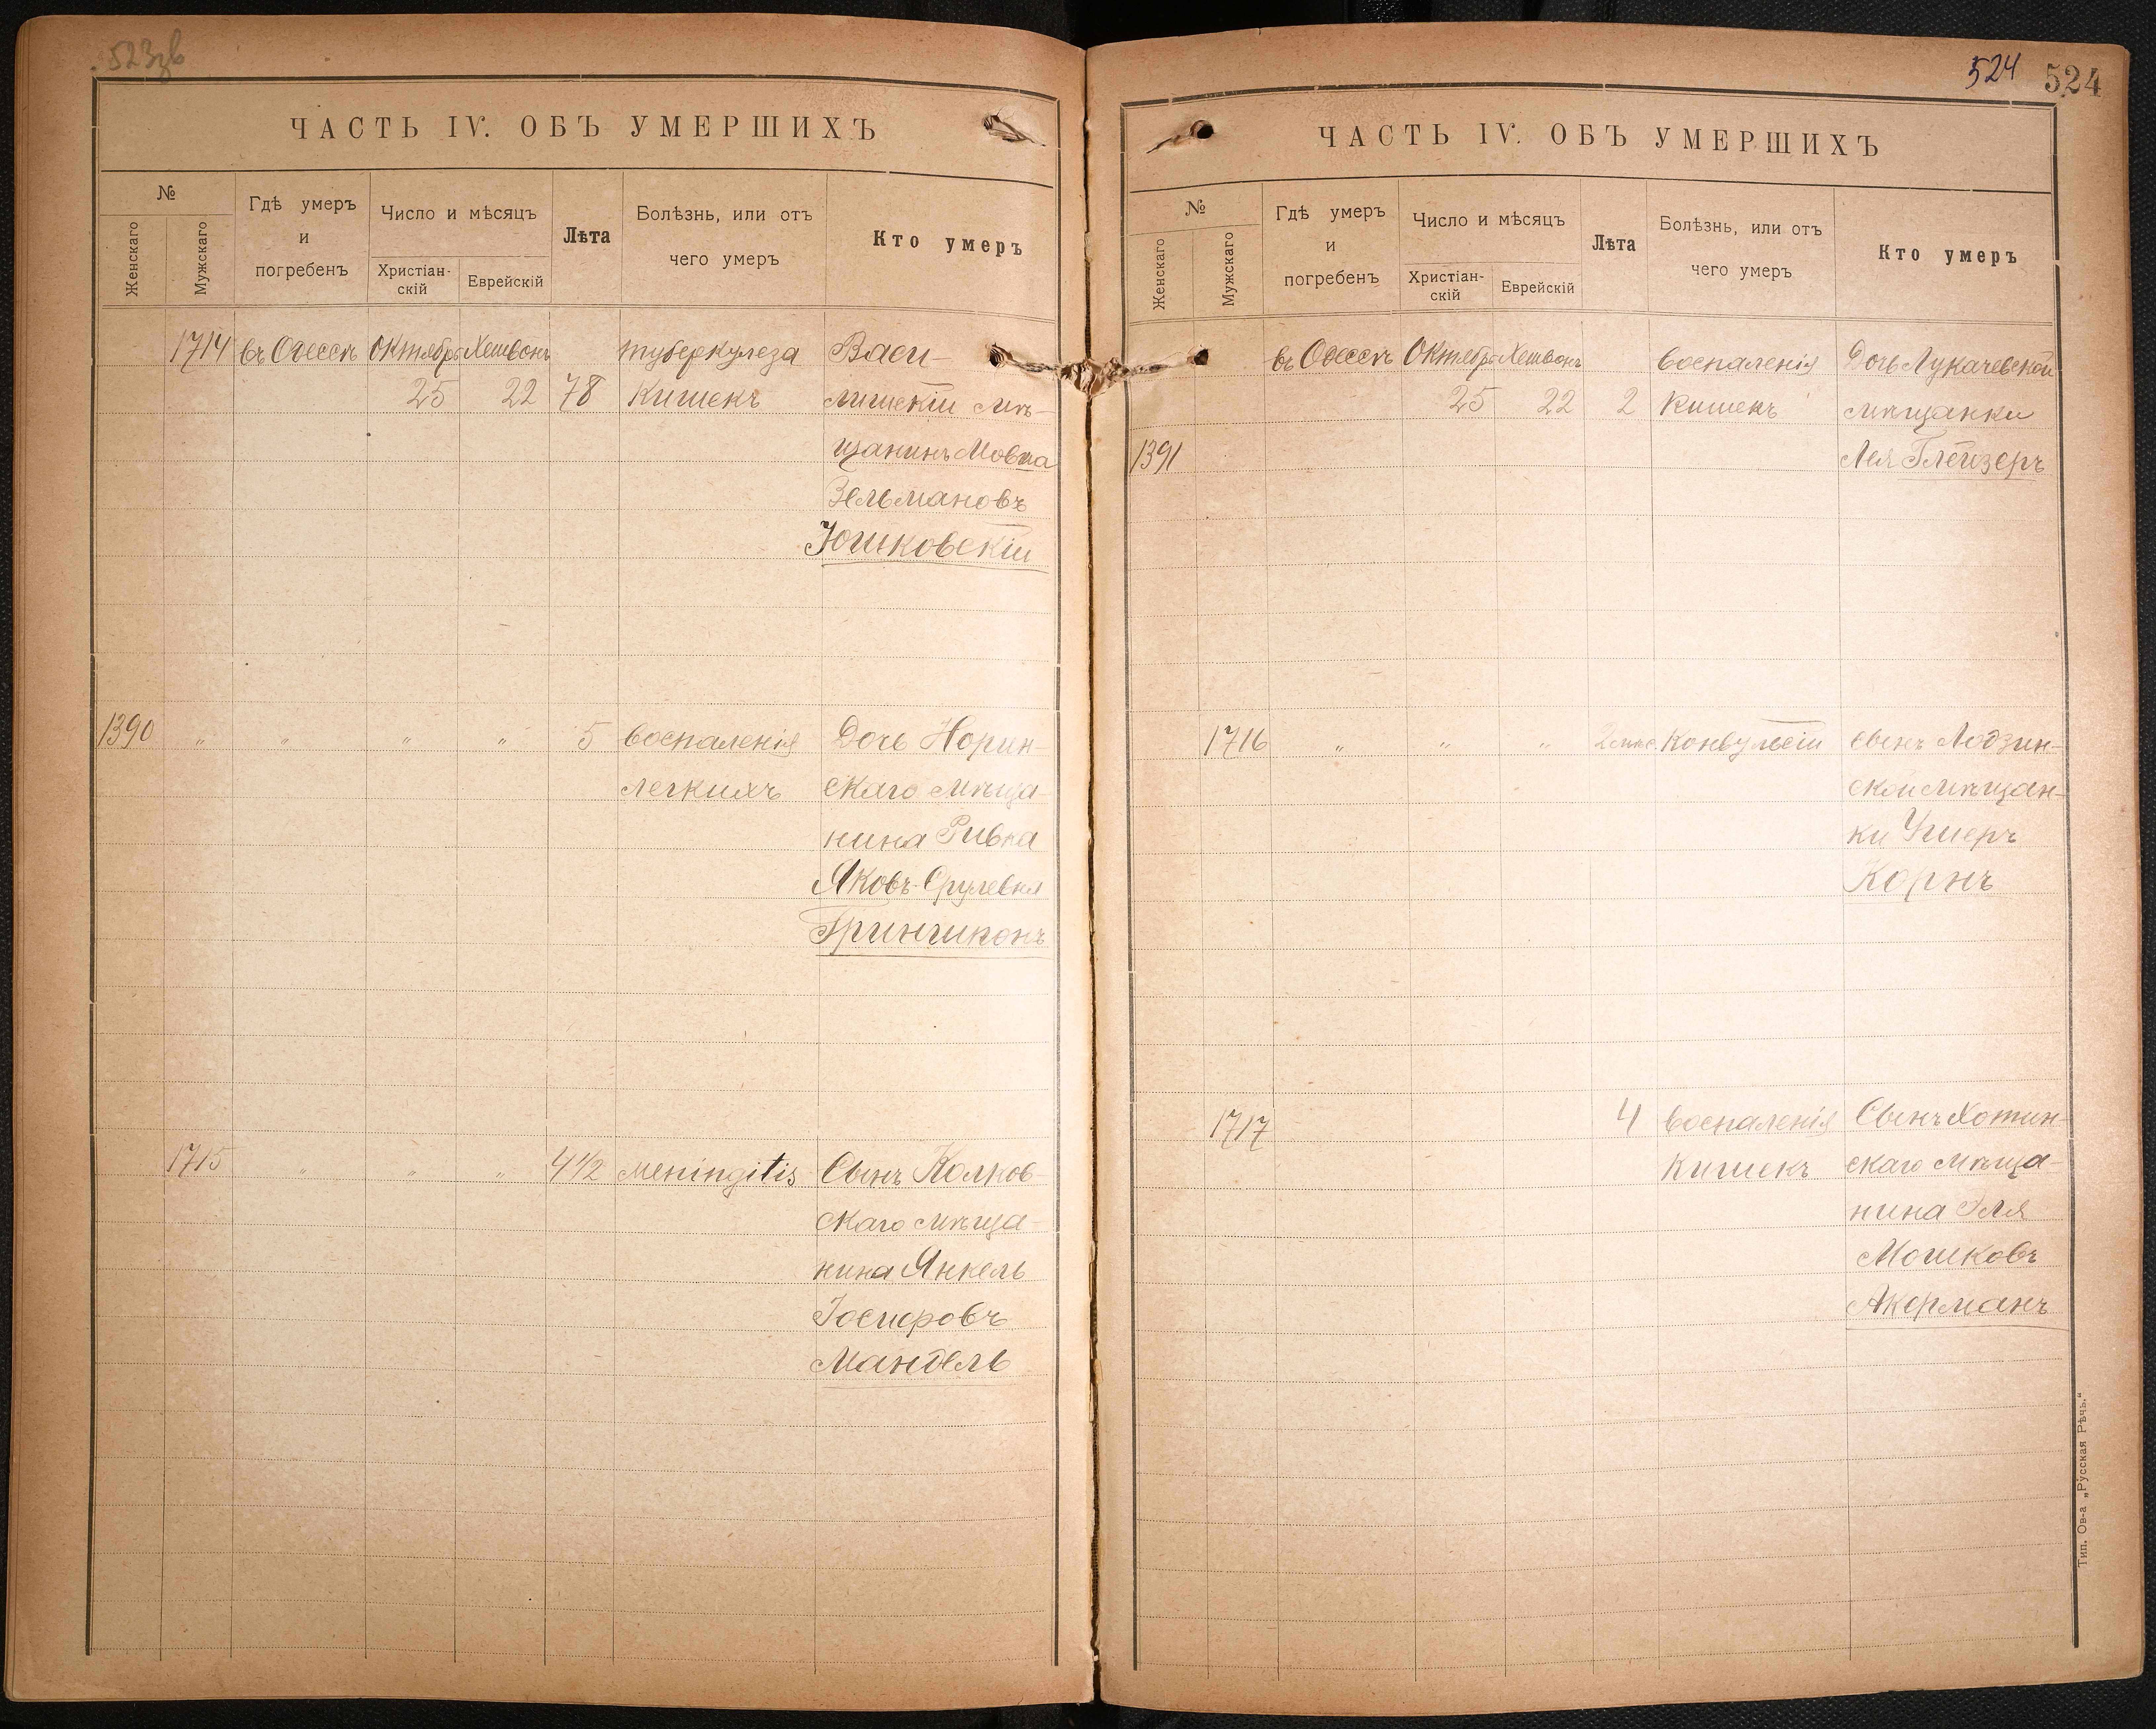 523зв
ЧАСТЬ IV. ОБЪ УМЕРШИХЪ
№
Женскаго
Мужскаго
Гдѣ умеръ
и
погребенъ
Число и мѣсяцъ
Христіан-
скій
Еврейскій
Лѣта
Болѣзнь, или отъ
чего умеръ
Кто умеръ
1714 въ Одессѣ Октябрь Хешвонъ туберкулеза Васи-
25 22 78 Кишекъ лишскій мѣ-
щанинъ Мовша
Зельмановъ
Юшковскій
1390 " " " " 5 воспаленія Дочь Норин-
легкихъ скаго мѣща-
нина Ривка
Яковъ-Срулевна
Гриншпонъ
1715 " " " 4 1/2 meningitis Сынъ Колков-
скаго мѣща-
нина Янкель
Іосифовъ
Мандель
524 524
ЧАСТЬ IV. ОБЪ УМЕРШИХЪ
№
Женскаго
Мужскаго
Гдѣ умеръ
и
погребенъ
Число и мѣсяцъ
Христіан-
скій
Еврейскій
Лѣта
Болѣзнь, или отъ
чего умеръ
Кто умеръ
въ Одессѣ Октябрь Хешвонъ воспаленія Дочь Лукачевской
25 22 2 Кишекъ мѣщанки
1391 Лея Глейзеръ
1716 " " " 2 мѣс. Конвульсіи сынъ Лодзин-
ской мѣщан-
ки Ушеръ
Корнъ
1717 4 воспаленія Сынъ Хотин-
Кишекъ скаго мѣща-
нина Эля
Мошковъ
Акерманъ
Тип. Ов-а „Русская Рѣчь.“